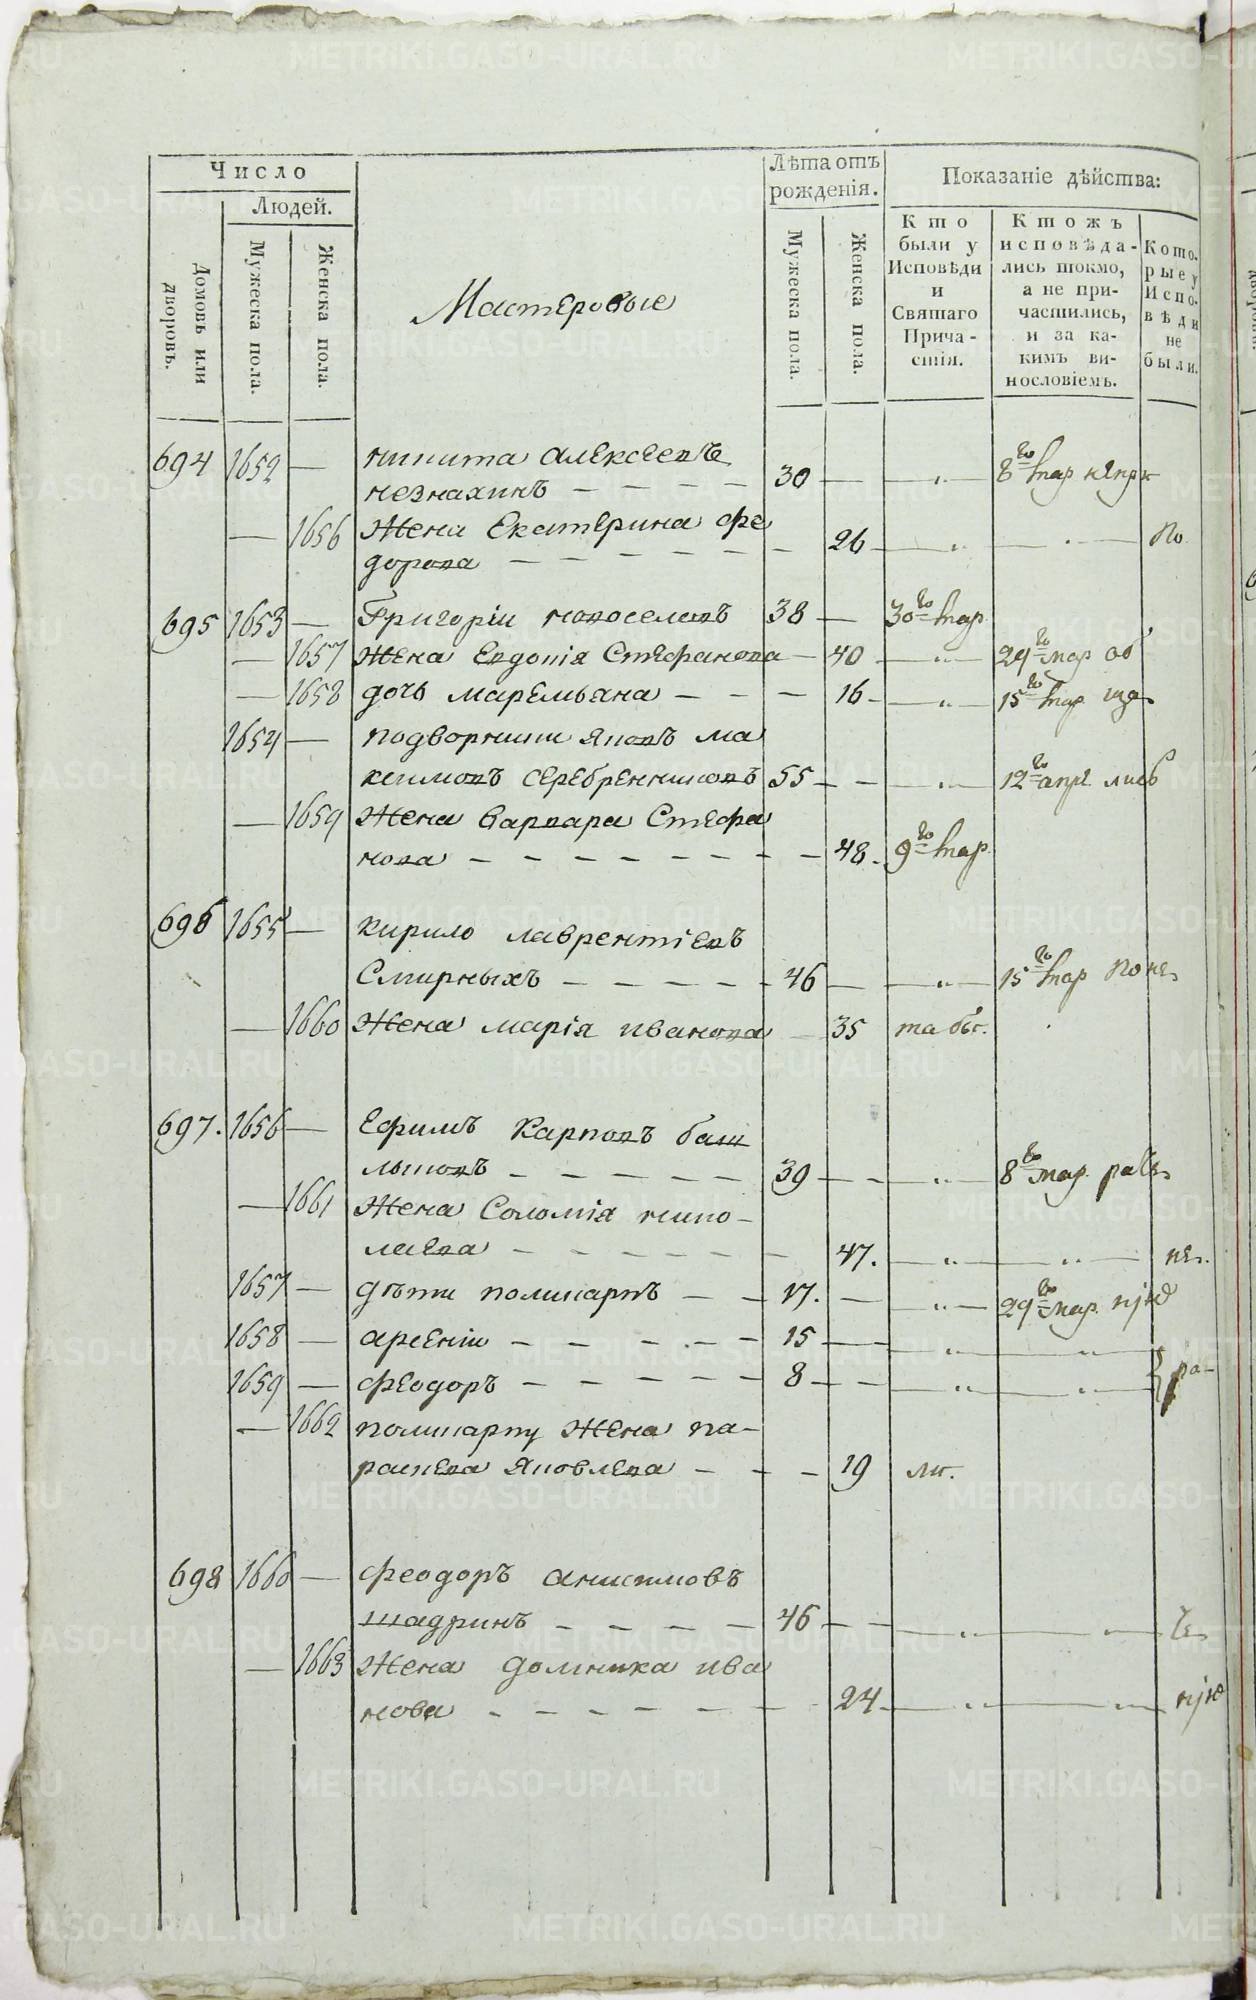 Число
Людей.
Домовъ или дворовъ.
Мужеска пола.
Женска пола.
Мастеровые
Лѣта отъ
рожденія.
Мужеска пола.
Женска пола.
Показаніе дѣйства:
Кто
были у
Исповѣди
и
Святаго
Прича-
стія.
Ктожъ
исповѣда-
лись токмо,
а не при-
частились,
и за ка-
кимъ ви-
нословіемъ.
Кото-
рые у
Испо-
вѣди
не
были.
694 1652 — никита алексеевъ
незнахинъ — — — — 30 — — „ — 8го мар
— 1656 Жена Екатерина фе
дорова — — — — — — 26 — „ — — „ — по
695 1653 — Григоріи новоселовъ 38 — 30го мар
— 1657 Жена Евдокія Стефанова — 40 — „ — 29го мар об
— 1658 дочь маремьяна — — — 16 — „ — 15го мар
1654 — подворники яковъ ма
ксимовъ серебренниковъ 55 — — „ — 12го апре
— 1659 Жена варвара Стефа
нова — — — — — — — — 48. 9го мар
696 1655 — кирило лаврентіевъ
Смирныхъ — — — — — 46 — — „ — 15го мар
— 1660 Жена марія иванова — 35
697. 1656 — Ефимъ Карповъ баш
лыковъ — — — — — 39 — — „ — 8го мар.
— 1661 Жена Соломія нико-
лаева — — — — — — 47. — „ — „ —
1657 — дѣти поликарпъ — — 17. — — „ — 29го мар.
1658 — арсеніи — — — — — 15 — — „ — „ —
1659 — феодоръ — — — — — 8 — — — „ — „ — ра-
— 1662 поликарпу Жена па-
раскева яковлева — — — 19
698 1660 — феодоръ анисимовъ
шадринъ — — — — 46 — — — „ — „ —
— 1663 Жена домника ива
нова — — — — — — 24 — „ — „ —
METRIKI.GASO-URAL.RU